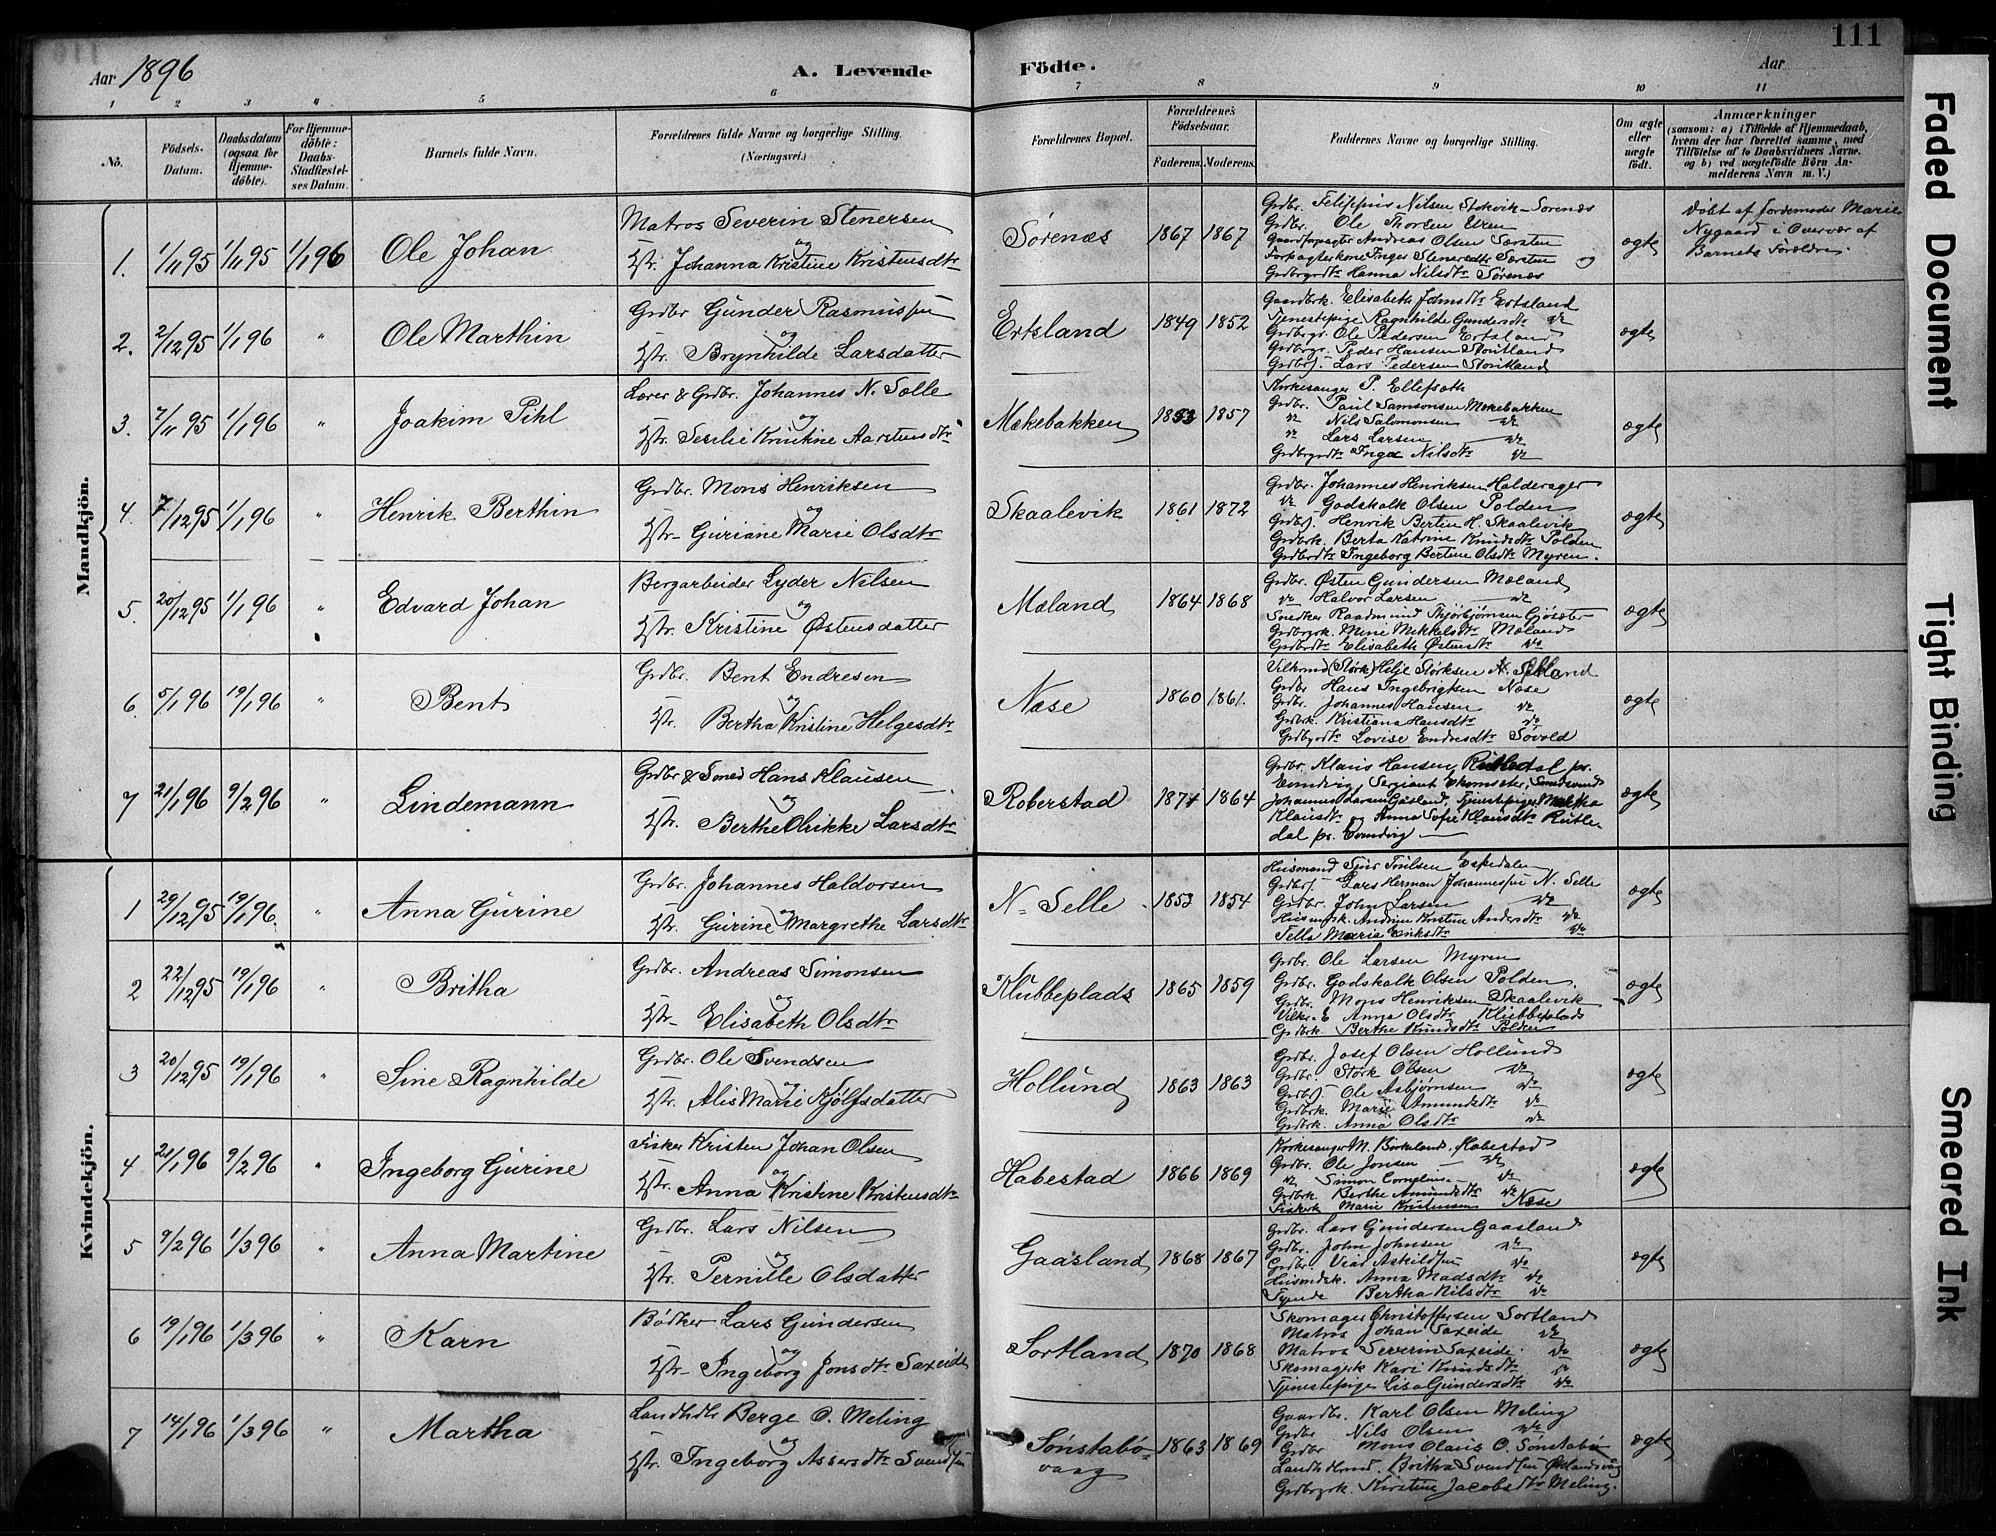 111
Aar 1896
A. Levende Födte.
Aar
1 2 3 4 5 6 7 8 9 10 11
No.
Födsels-Datum.
Daabsdatum (ogsaa for Hjemme-döbte).
For Hjemme-döbte: Daabs-Stadfæstel-ses Datum.
Barnets fulde Navn.
Forældrenes fulde Navne og borgerlige Stilling. (Næringsvei.)
Forældrenes Bopæl.
Forældrenes Födselsaar.
Faderens. Moderens.
Faddernes Navne og borgerlige Stilling.
Om ægte eller uægte födt.
Anmærkninger
(saasom: a) i Tilfælde af Hjemmedaab,
hvem der har forrettet samme, med
Tilföielse af to Daabsvidners Navne.
og b) ved uægtefödte Börn An-
melderens Navn m. V.)
Mandkjön.
1. 1/11 95 1/11 95 1/1 96 Ole Johan
Matros Severin Stenersen
og
Hstr. Johanna Kristine Kristensdtr
Sørenæs 1867 1867
Grdbr. Filippus Nilsen Stokvik-Sørenæs
Grdbr. Ole Thorsen
Gaardforpagter Andreas Olsen Sørsten
Forpagterkone Inger Stenersdtr Sørsten og
Grdbrgrdtr Hanna Nilsdtr Sørenæs
ægte
Døbt af Jordemoder Marie
Nygaard i Overvær af
Barnets Forældre.
2. 2/12 95 1/1 96 " Ole Marthin
Grdbr Gunder Rasmussen
og
Hstr. Brynhilde Larsdatter
Ertsland 1849 1852
Gaardbrk. Elisabeth Johnsdtr Ertsland
Tjenestepige Ragnhilde Gundersdtr do
Grdbrgr. Ole Pedersen Ertsland
Grdbrgr. Peder Hansen Stortland
Grdbrs. Lars Pedersen Stortland
ægte
3. 7/11 95 1/1 96 " Joakim Pihl
Lærer & Grdbr. Johannes N. Sælle
og
Hstr. Sesilie Knutine Aarstensdtr
Møkebakken 1853 1857
Kirkesanger P. Ellefseth
Grdbr. Paul Samsonsen Møkebakken
do Nils Salomonsen do
do Lars Larsen do
Grdbrgrdtr Inga Nilsdtr do
ægte
4. 7/12 95 1/1 96 " Henrik Berthin
Grdbr. Mons Henriksen
og
Hstr. Guriane Marie Olsdtr
Skaalevik 1861 1872
Grdbr. Johannes Henriksen Halderager
do Godskalk Olsen Polden
Grdbrs. Henrik Berten H. Skaalevik
Grdbrk. Berta Katrine Knudsdtr Polden
Grdbrdtr Ingeborg Bertine Olsdtr Myren.
ægte
5. 20/12 95 1/1 96 " Edvard Johan
Bergarbeider Lyder Nilsen
og
Hstr. Kristine Østensdatter
Mæland 1864 1868
Grdbr. Østen Gundersen Mæland
do Halvor Larsen do
Snedker Raadmund Thjørbjørnsen Gjøsæter
Grdbrgrk. Mine Mikkelsdtr Mæland
Grdbrdtr Elisabeth Østensdtr do
ægte
6. 5/1 96 19/1 96 " Bent
Grdbr. Bent Endresen
og
Hstr. Bertha Kristine Helgesdtr
Næse 1860 1861.
(Størk) Helje Størksen N. Selland
Grdbr Hans Ingebrigtsen Næse
Grdbr. Johannes Hansen do
Grdbrk. Kristiana Hansdtr do
Grdbrgrdtr Lovise Endresdtr Søvold
ægte
7 21/1 96 9/2 96 " Lindemann
Grdbr & Smed Hans Klausen
og
Hstr. Berthe Olrikke Larsdtr
Roberstad 1871 1864
Grdbr. Klaus Hansen Rutledal pr.
Evindvig, Sergiant
Johannes Larsen Gåsland, Tjenestepiger Martha
Klausdtr og Anna Sofie Klausdtr Rutle-
dal pr. Evindvig
ægte
Kvindekjön.
1 29/12 95 19/1 96 " Anna Gurine
Grdbr. Johannes Haldorsen
og
Hstr. Gurine Margrethe Larsdtr
N. Selle 1853 1854
Husmand Espedalen
Grdbrs. Lars Herman Johannessen N. Selle
Grdbr. John Larsen do
Husmdsk. Andrine Kristine Andersdtr do
Maria Eriksdtr do
ægte
2 22/12 95 19/1 96 " Britha
Grdbr. Andreas Simonsen
og
Hstr. Elisabeth Olsdtr
Klubbeplads 1865 1859
Grdbr. Ole Larsen Myren
Grdbr. Godskalk Olsen Polden.
Grdbr. Mons Henriksen Skaalevik
Anna Olsdtr Klubbeplads
Grdbrk. Berthe Knudsdtr Polden
ægte
3 20/12 95 19/1 96 " Sine Ragnhilde
Grdbr. Ole Svendsen
og
Hstr. Alis Marie Kjølfsdatter
Hollund 1863 1863
Grdbr. Josef Olsen Hollund
Grdbr. Størk Olsen do
Grdbrs. Ole Asbjørnsen do
Grdbrk. Marie Amundsdtr do
Grdbrk. Anna Olsdtr do
ægte
4 21/1 96 9/2 96 " Ingeborg Gurine
Fisker Kristen Johan Olsen
og
Hstr. Anna Kristine Kristensdtr
Habestad 1866 1869
Kirkesanger M. Birkeland, Habestad
Grdbr. Ole Jonsen do
do Simon Cornelius do
Grdbrk. Berthe Amundsdtr do
Fiskerk Marie Kristensen Næse
ægte
5 9/2 96 1/3 96 " Anna Martine
Grdbr. Lars Nilsen
og
Hstr. Pernille Olsdatter
Gaasland 1868 1867
Grdbr. Lars Gundersen Gaasland
Grdbr. John Johnsen do
Grdbr. Askildsen do
Husmdsk. Anna Madsdtr do
Tjende Bertha Nilsdtr do
ægte
6 19/1 96 1/3 96 " Karn
Bødker Lars Gundersen
og
Hstr. Ingeborg Jonsdtr Saxeide
Sortland 1870 1868
Skomager Christoffersen Sortland
Matros Johan Saxeide do
Matros Serverin Saxeide do
Skomagerk Kari Knudsdtr do
Tjenestepige Lisa Gundersdtr do
ægte
7 14/1 96 1/3 96 " Martha
Landhdlr Berge O. Meling
og
Hstr. Ingeborg Assersdtr Svendsen
Sønstabø-
vaag 1863 1869
Gaardbr. Karl Olsen Meling
Grdbr Nils Olsen do
Grdbr Mons Olaus O. Sønstabø
Britha Svendsen
Grdbrgrk. Kirstine Jacobsdtr Meling.
ægte
Faded Document
Tight Binding
Smeared Ink